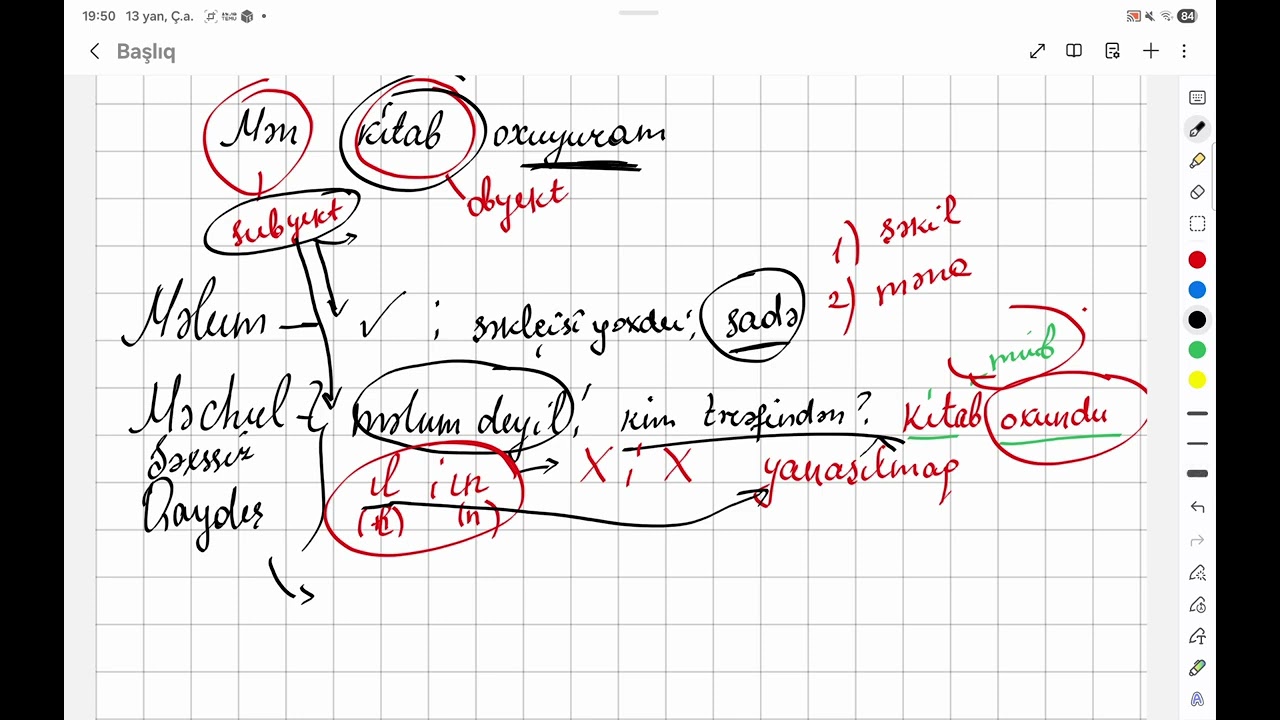 19:50 13 yan, Ç.a. 84
Başlıq
Mən kitab oxuyuram
subyekt obyekt
1) şəkil
2) məna
Məlum – ✓ ; şəkilçisi yoxdur; sadə
müb
Məchul – məlum deyil; kim tərəfindən? kitab oxundu
Şəxssiz il ; in → X ; X yanaşılmaq
Qayıdış (n)